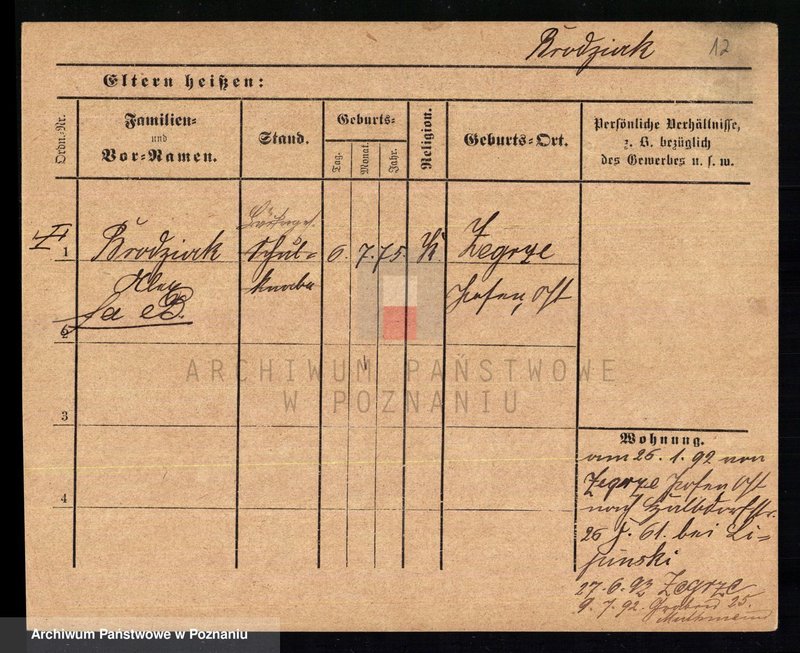 Brodziak 12
Eltern heißen:
Ordn.-Nr.
Familien-
und
Vor-Namen.
Stand.
Geburts-
Tag.
Monat.
Jahr.
Religion.
Geburts-Ort.
Persönliche Verhältnisse,
z. B. bezüglich
des Gewerbes u. s. w.
1
Brodziak
Schul-
knabe
6. 7. 75.
K.
Zegrze
Posen, Ost
2
3
4
ARCHIWUM PAŃSTWOWE
W POZNANIU
Wohnung.
am 26. 1. 92 von
Zegrze Posen Ost
nach
26 bei Li-
pinski
27. 6. 92 Zegrze
9. 7. 92. 25.
Archiwum Państwowe w Poznaniu